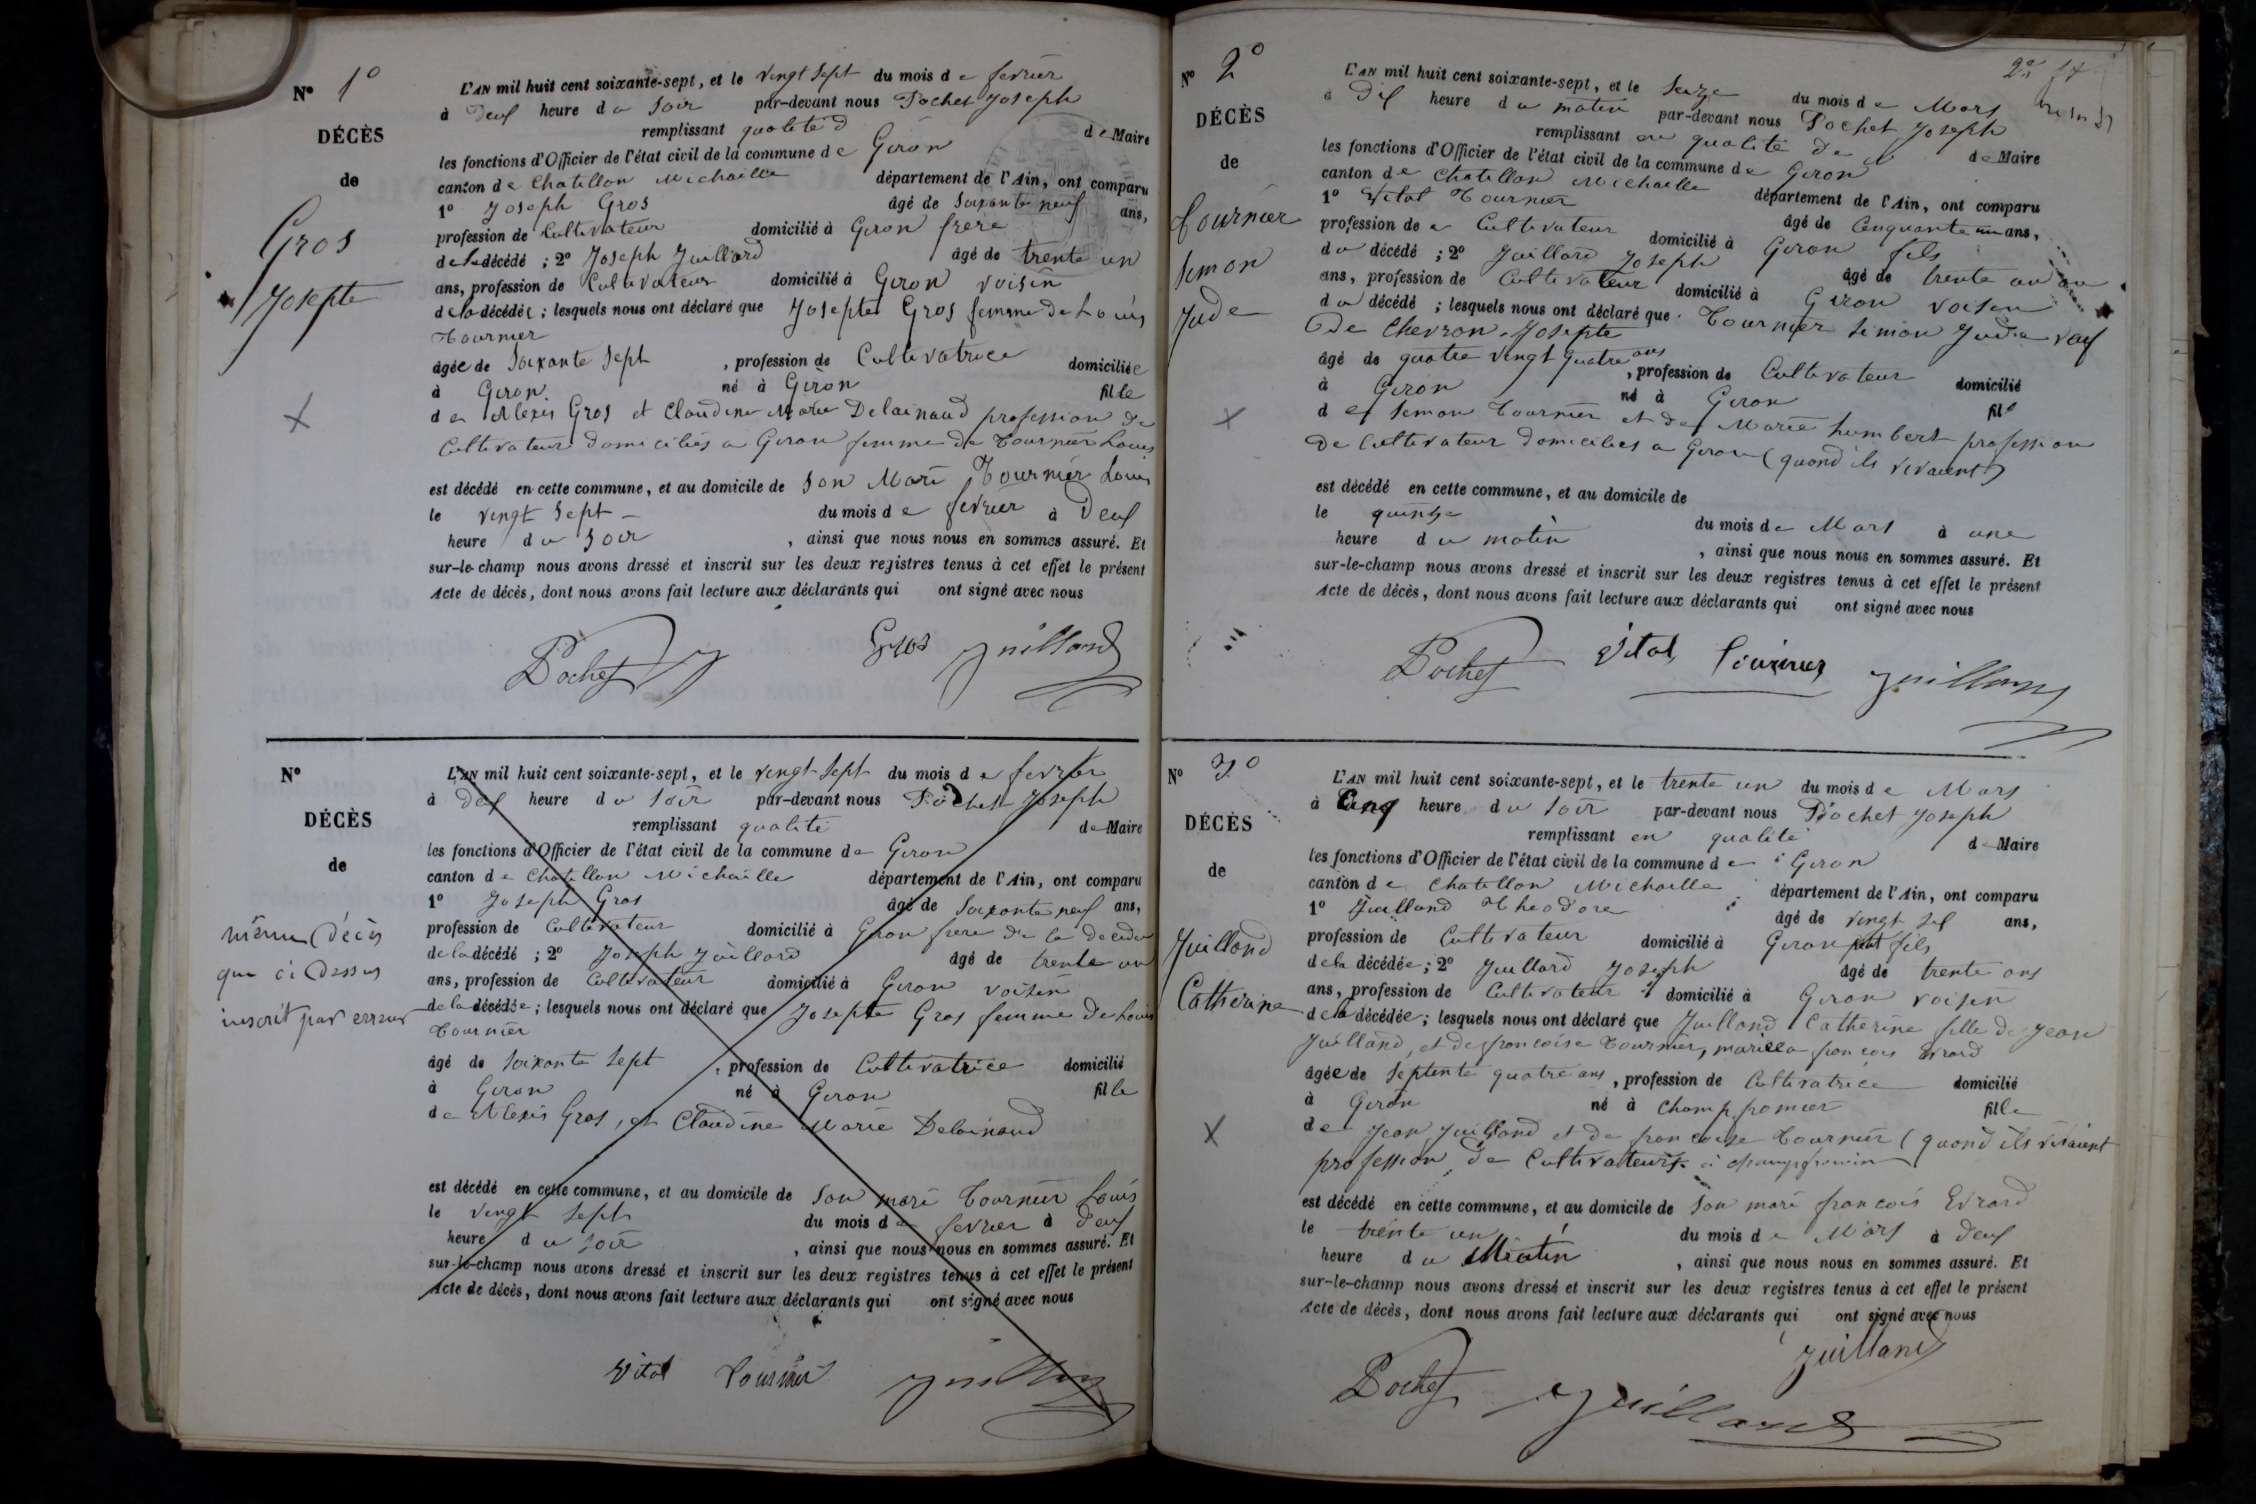 N° 1°
DÉCÈS
de
Gros
Josepte
L'AN mil huit cent soixante-sept, et le vingt sept du mois de fevrier
à deux heure du soir par-devant nous Pochet Joseph
remplissant qualité d de Maire
les fonctions d'Officier de l'état civil de la commune de Giron
canton de Chatillon Michaille département de l'Ain, ont comparu
1° Joseph Gros âgé de soixante neuf ans,
profession de Cultivateur domicilié à Giron frere
de la décédé ; 2° Joseph Juillard âgé de trente un
ans, profession de Cultivateur domicilié à Giron voisin
de la décédée ; lesquels nous ont déclaré que Josepte Gros femme de Louis
Tournier
âgée de soixante sept , profession de Cultivatrice domiciliée
à Giron né à Giron fille
de Alexis Gros et Claudine Marie Delainaud profession de
Cultivateur domiciliés a Giron femme de Tournier Louis
est décédé en cette commune, et au domicile de son Mari Tournier Louis
le vingt sept du mois de fevrier à deux
heure du soir , ainsi que nous nous en sommes assuré. Et
sur-le-champ nous avons dressé et inscrit sur les deux registres tenus à cet effet le présent
Acte de décès, dont nous avons fait lecture aux déclarants qui ont signé avec nous
Pochet J Gros Juillard
N°
DÉCÈS
de
même Décès
que ci Dessus
inscrit par erreur
L'AN mil huit cent soixante-sept, et le vingt sept du mois de fevrier
à deux heure du soir par-devant nous Pochet Joseph
remplissant qualité de Maire
les fonctions d'Officier de l'état civil de la commune de Giron
canton de Chatillon Michaille département de l'Ain, ont comparu
1° Joseph Gros âgé de soixante neuf ans,
profession de Cultivateur domicilié à Giron frere de la décédée
de la décédé ; 2° Joseph Juillard âgé de trente un
ans, profession de Cultivateur domicilié à Giron voisin
de la décédée ; lesquels nous ont déclaré que Josepte Gros femme de Louis
Tournier
âgé de soixante sept , profession de Cultivatrice domicilié
à Giron né à Giron fille
de Alexis Gros, et Claudine Marie Delainaud
est décédé en cette commune, et au domicile de son mari Tournier Louis
le vingt sept du mois de fevrier à deux
heure du soir , ainsi que nous nous en sommes assuré. Et
sur-le-champ nous avons dressé et inscrit sur les deux registres tenus à cet effet le présent
Acte de décès, dont nous avons fait lecture aux déclarants qui ont signé avec nous
Vital Tournier Juillard
N° 2°
DÉCÈS
de
Tournier
Simon
Jude
L'AN mil huit cent soixante-sept, et le seize du mois de Mars
à dix heure du matin par-devant nous Pochet Joseph
remplissant en qualité de de Maire
les fonctions d'Officier de l'état civil de la commune de Giron
canton de Chatillon Michaille département de l'Ain, ont comparu
1° Vital Tournier âgé de Cinquante un ans,
profession de Cultivateur domicilié à Giron fils
du décédé ; 2° Juillard Joseph âgé de trente un
ans, profession de Cultivateur domicilié à Giron voisin
du décédé ; lesquels nous ont déclaré que Tournier Simon Jude veuf
de Chevron Josepte
âgé de quatre vingt quatre ans , profession de Cultivateur domicilié
à Giron né à Giron fils
de Simon Tournier et de Marie humbert profession
De Cultivateur domiciliés a Giron (quand ils vivaient)
est décédé en cette commune, et au domicile de
le quinze du mois de Mars à une
heure du matin , ainsi que nous nous en sommes assuré. Et
sur-le-champ nous avons dressé et inscrit sur les deux registres tenus à cet effet le présent
Acte de décès, dont nous avons fait lecture aux déclarants qui ont signé avec nous
Pochet Vital Tournier Juillard
N° 3°
DÉCÈS
de
Juilland
Catherine
L'AN mil huit cent soixante-sept, et le trente un du mois de Mars
à Cinq heure du soir par-devant nous Pochet Joseph
remplissant en qualité de Maire
les fonctions d'Officier de l'état civil de la commune de Giron
canton de Chatillon Michaille département de l'Ain, ont comparu
1° Juilland Theodore âgé de vingt six ans,
profession de Cultivateur domicilié à Giron petit fils
de la décédée ; 2° Juillard Joseph âgé de trente ans
ans, profession de Cultivateur domicilié à Giron voisin
de la décédée ; lesquels nous ont déclaré que Juilland Catherine fille de Jean
Juilland, et de francoise Tournier, mariée a francois Evrard
âgée de septente quatre ans , profession de Cultivatrice domicilié
à Giron né à Champfromier fille
de Jean Juilland et de francoise Tournier (quand ils vivaient
profession de Cultivateurs à champfromier
est décédé en cette commune, et au domicile de son mari francois Evrard
le trente un du mois de Mars à deux
heure du Matin , ainsi que nous nous en sommes assuré. Et
sur-le-champ nous avons dressé et inscrit sur les deux registres tenus à cet effet le présent
Acte de décès, dont nous avons fait lecture aux déclarants qui ont signé avec nous
Juilland
Pochet Juillard